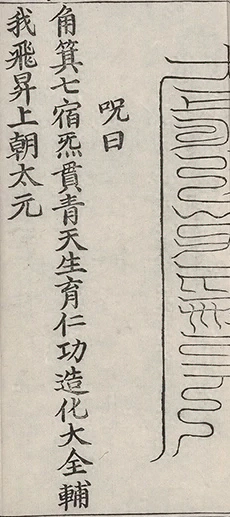 呪曰
角箕七宿炁貫青天生育仁功造化大全輔
我飛昇上朝太元